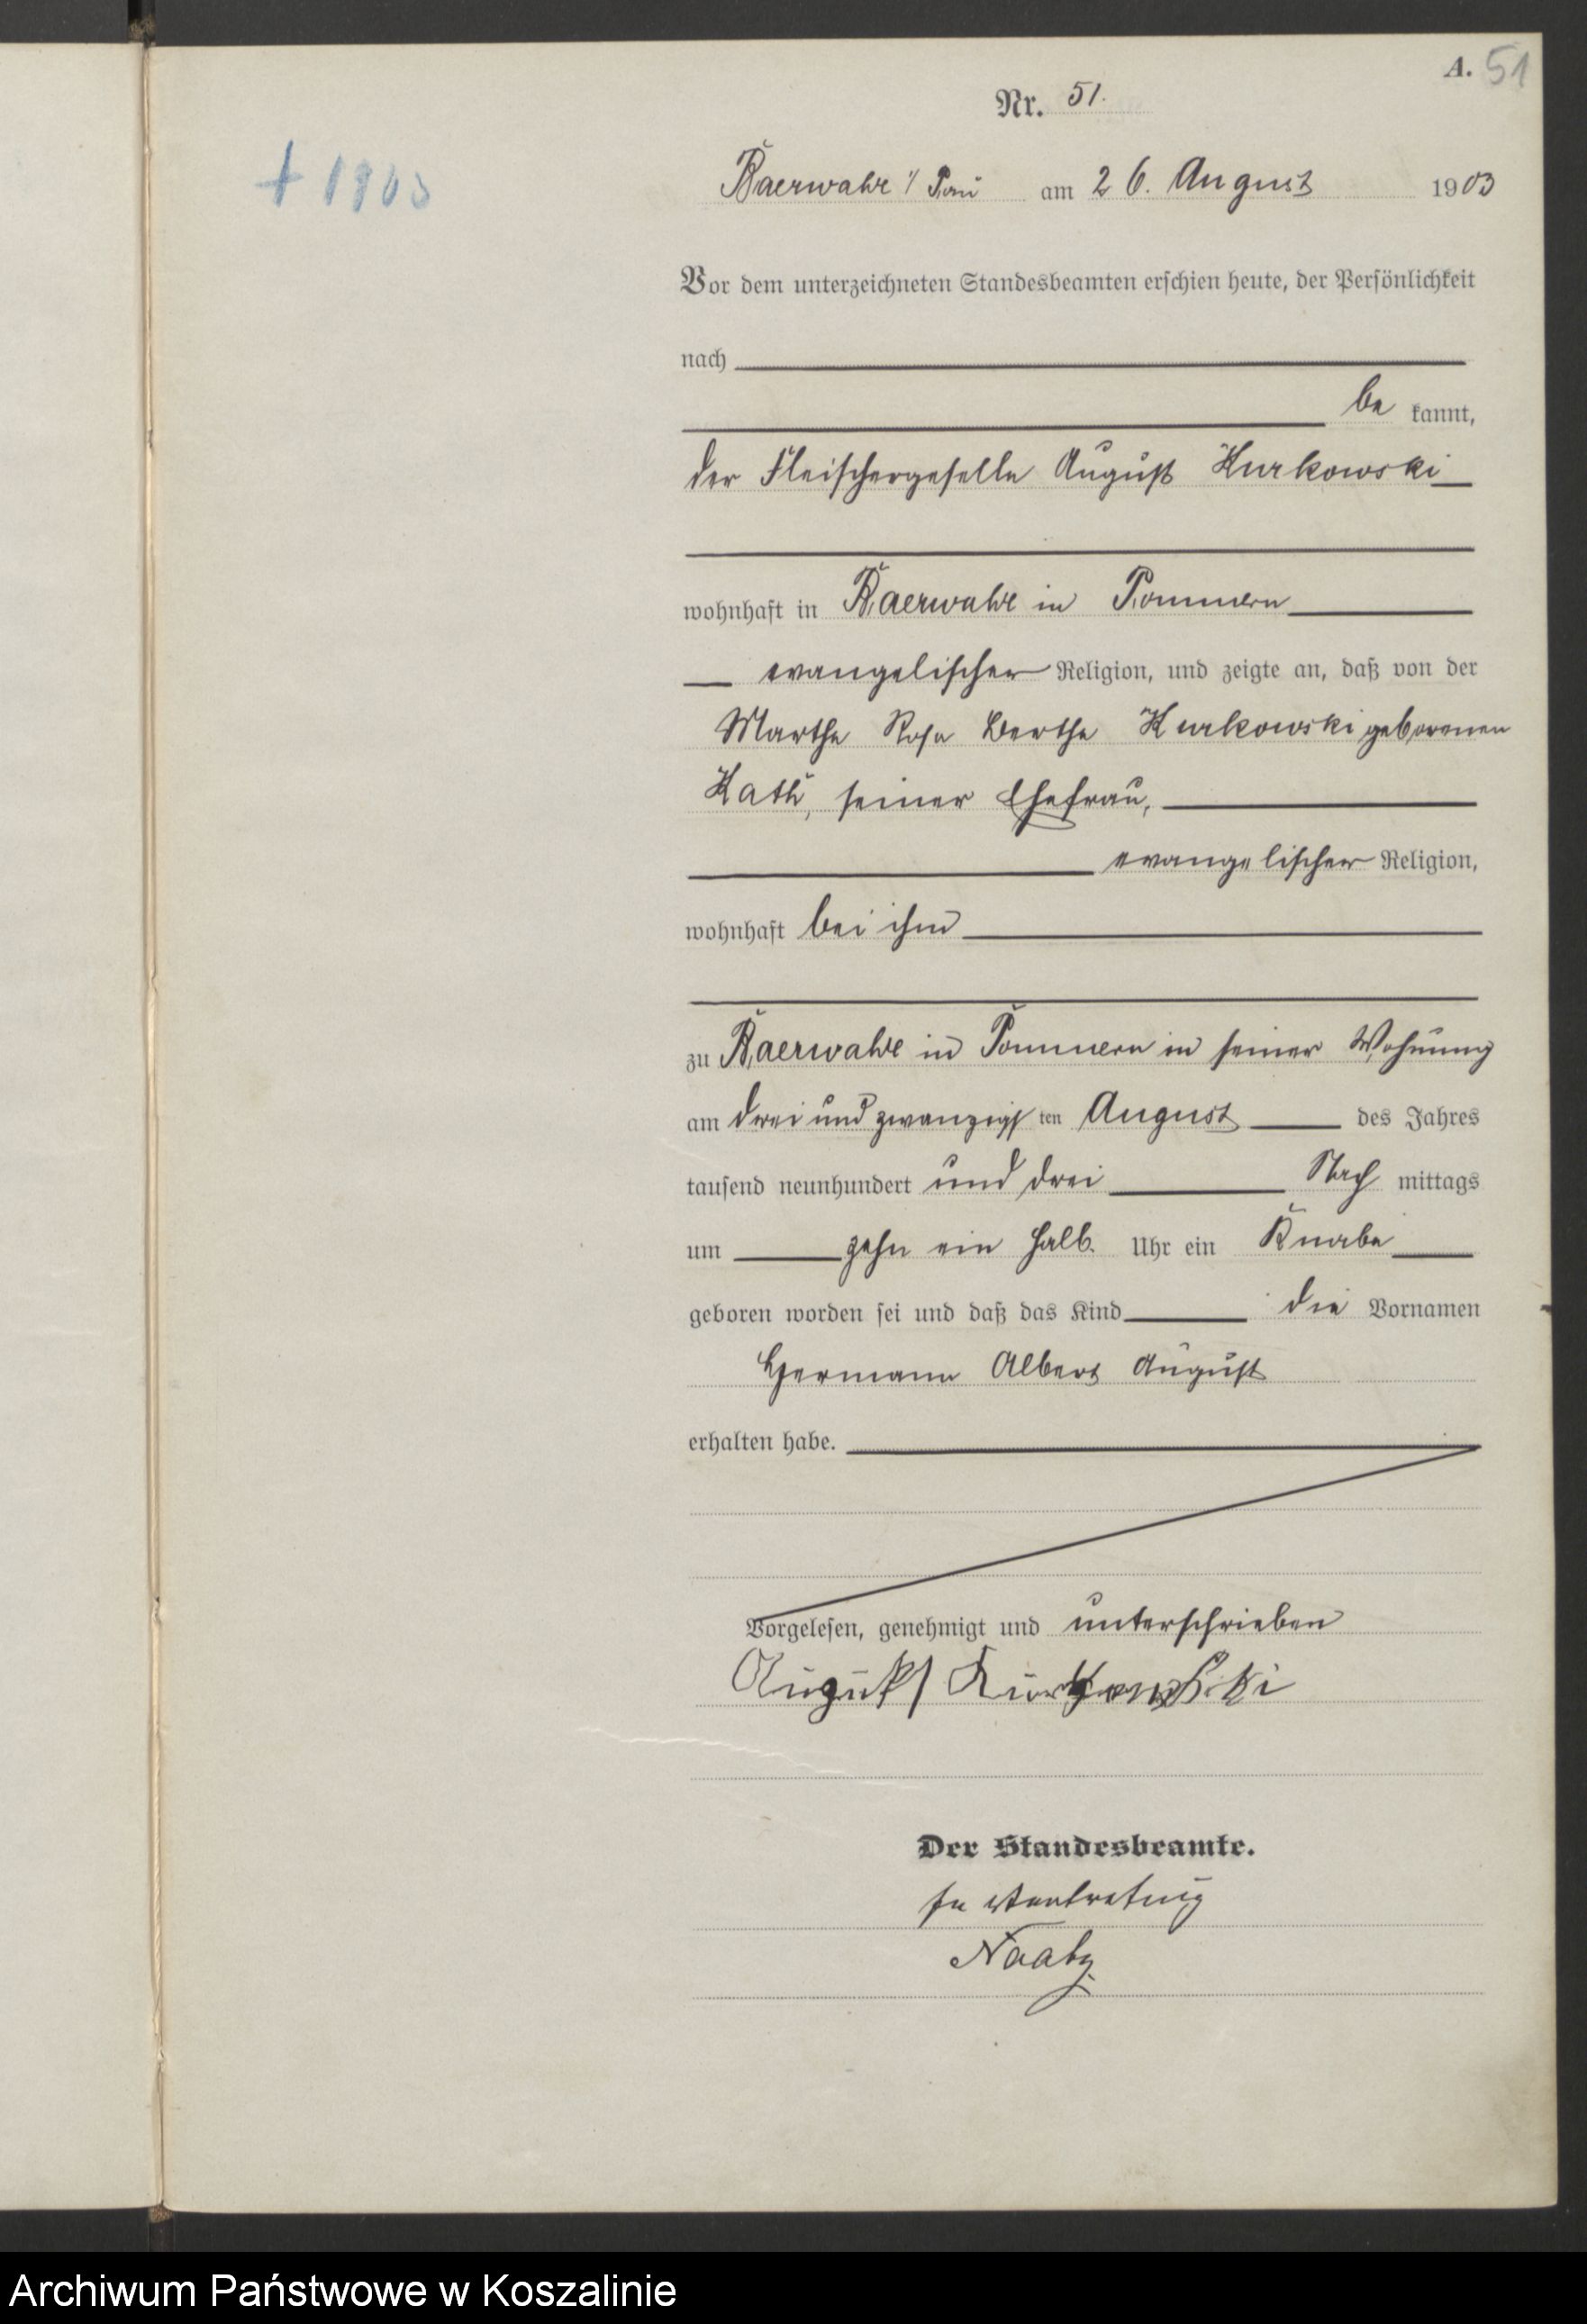 A. 51
Nr. 51.
† 1903
Baerwalde i/ Pom am 26. August 1903
Vor dem unterzeichneten Standesbeamten erschien heute, der Persönlichkeit
nach
be kannt,
der Fleischergeselle August Kurkowski
wohnhaft in Baerwalde in Pommern
evangelischer Religion, und zeigte an, daß von der
Martha Rosa Bertha Kurkowski geborenen
Kath, seiner Ehefrau,
evangelischer Religion,
wohnhaft bei ihm
zu Baerwalde in Pommern in seiner Wohnung
am drei und zwanzigsten August des Jahres
tausend neunhundert und drei Nach mittags
um zehn ein halb Uhr ein Knabe
geboren worden sei und daß das Kind die Vornamen
Hermann Albert August
erhalten habe.
Vorgelesen, genehmigt und unterschrieben
August Kurkowski
Der Standesbeamte.
In Vertretung
Naatz
Archiwum Państwowe w Koszalinie